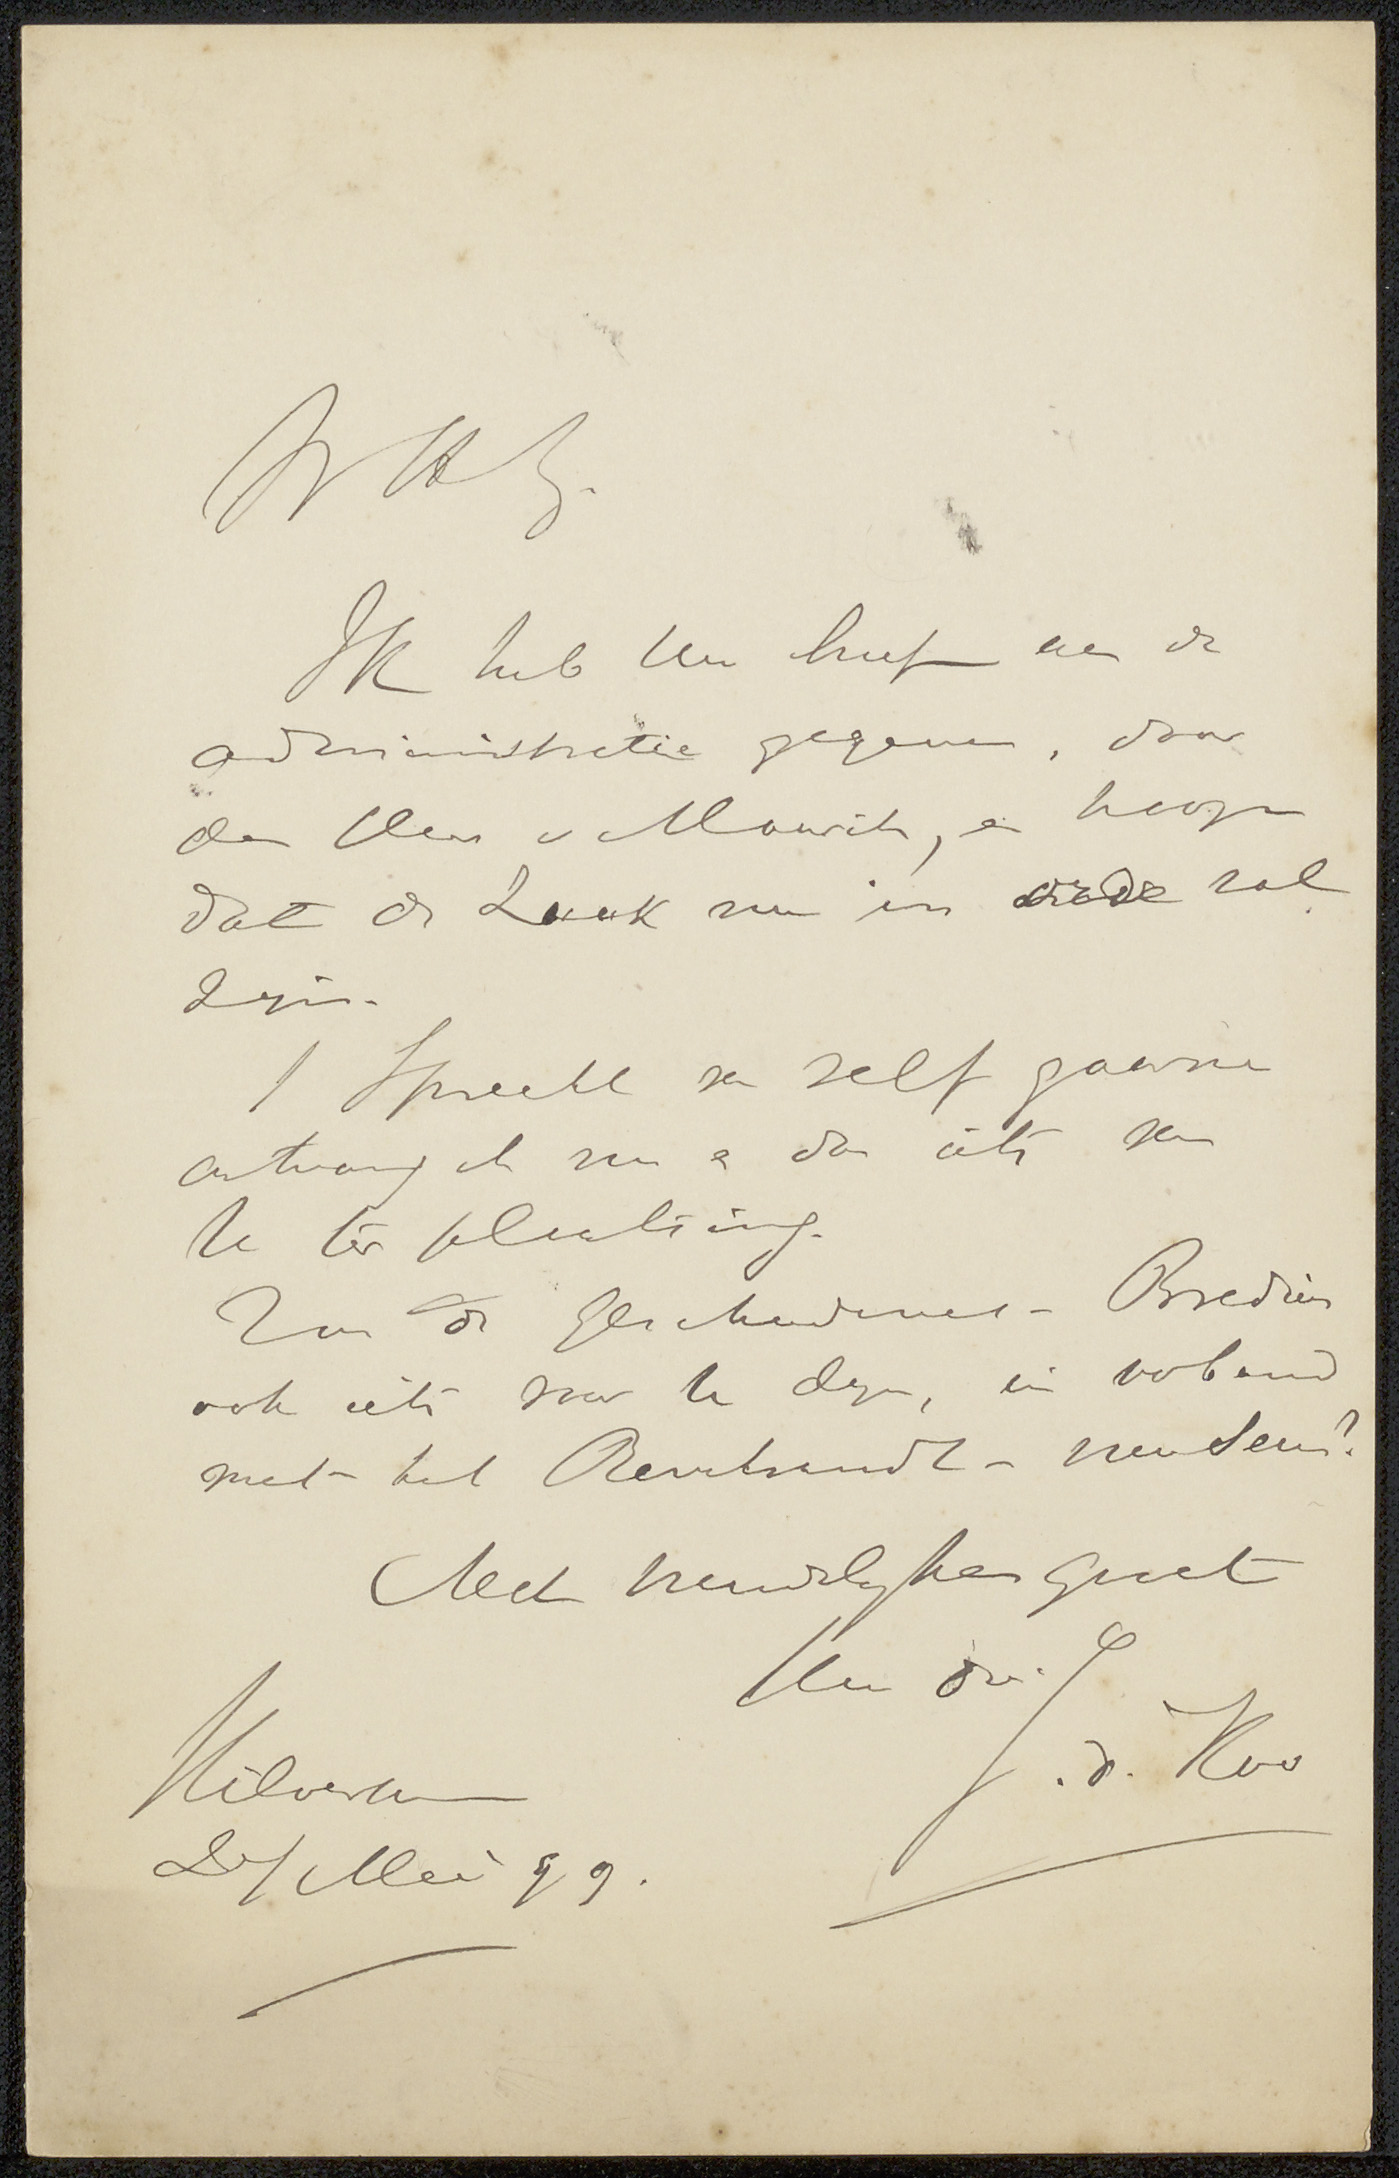 W H G.
Ik heb Uw brief aan de
administratie gegeven, door
den Heer v Maurik, en hoop
dat de zaak nu in orde zal
zijn.
't Spreekt van zelf gaarne
ontvang ik nu en dan iets van
U ter plaatsing.
Zou de geschiedenis - Bredius
ook iets voor U zijn, in verband
met het Rembrandt - nu Sem?
Met vriendelijken groet
Uw dw.
J. d. Koo
Hilversum
27 Mei 99.